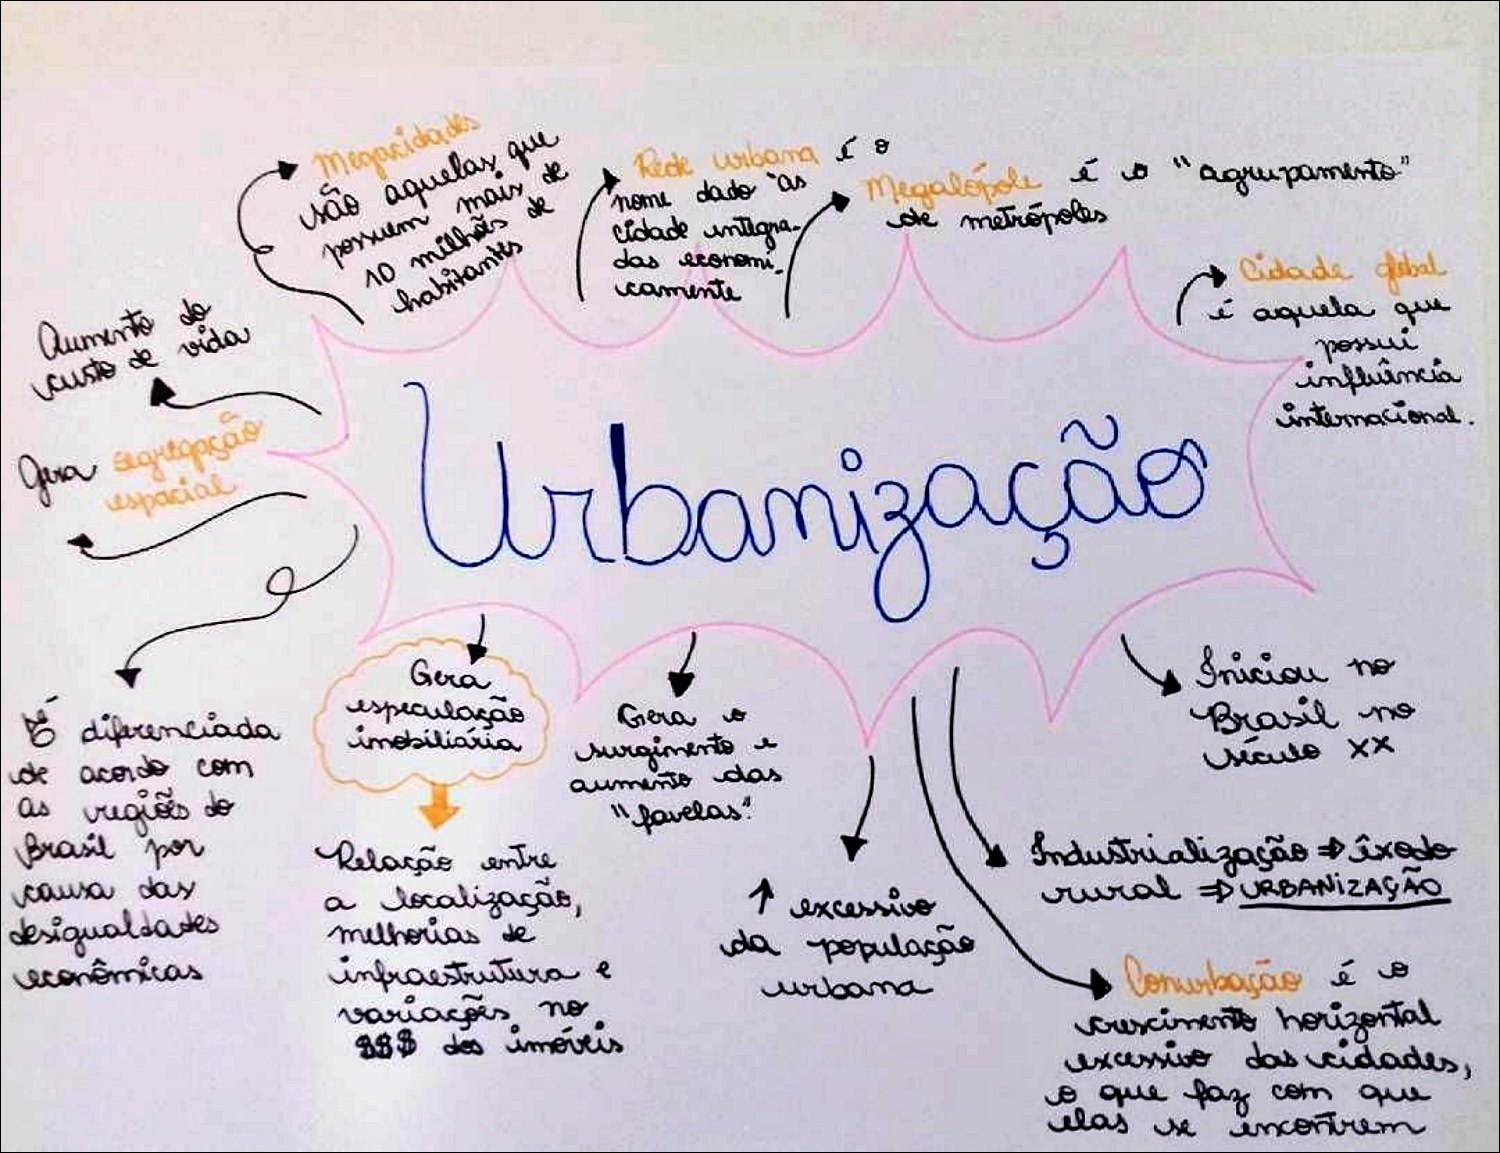 Megacidades
são aquelas que
possuem mais de
10 milhões de
habitantes
Rede urbana é o
nome dado "as
cidade integra-
das economi-
camente
Megalópole é o "agrupamento"
de metrópoles
Cidade global
é aquela que
possui
influência
internacional.
Aumento do
custo de vida
Gera segregação
espacial
Urbanização
É diferenciada
de acordo com
as regiões do
Brasil por
causa das
desigualdades
econômicas
Gera
especulação
imobiliária
Relação entre
a localização,
melhorias de
infraestrutura e
variações no
$$$ dos imóveis
Gera o
surgimento e
aumento das
"favelas".
↑ excessivo
da população
urbana
Iniciou no
Brasil no
século XX
Industrialização ⇒ êxodo
rural ⇒ URBANIZAÇÃO
Conurbação é o
crescimento horizontal
excessivo das cidades,
o que faz com que
elas se encontrem